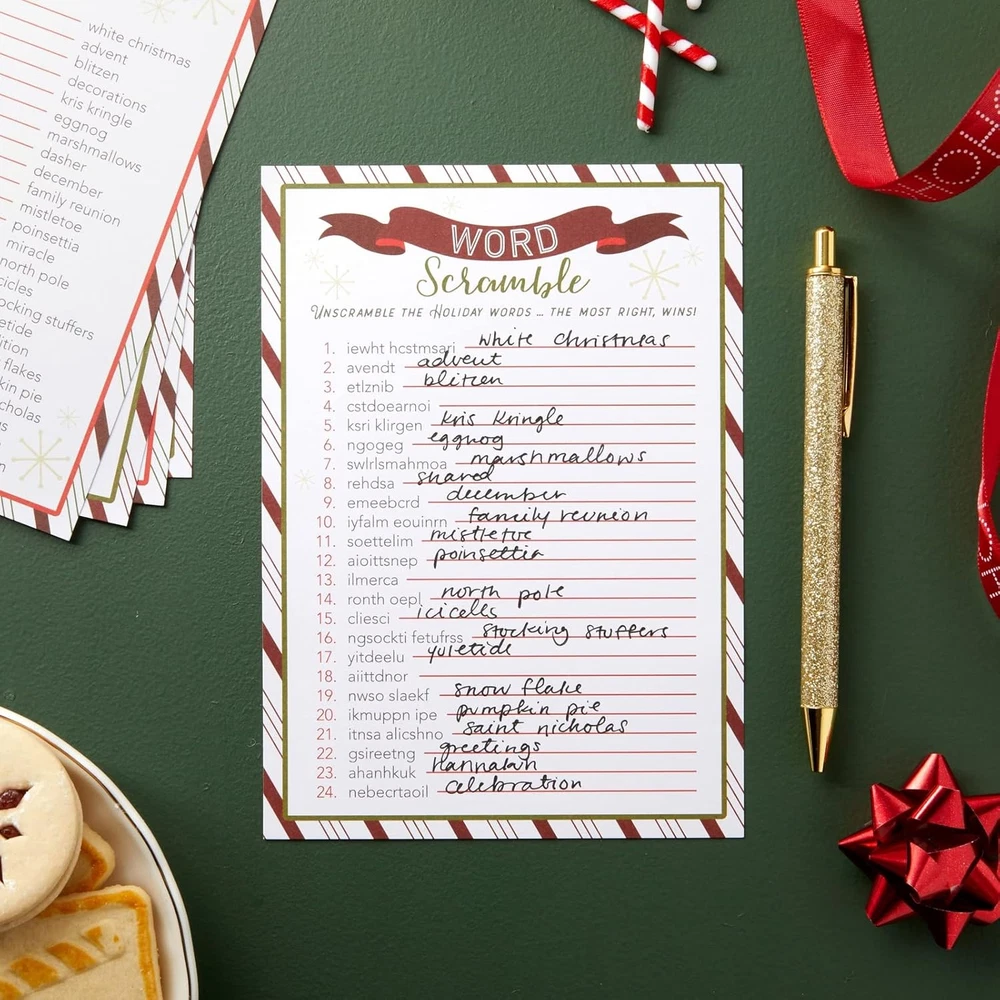 white christmas
advent
blitzen
decorations
kris kringle
eggnog
marshmallows
dasher
december
family reunion
mistletoe
poinsettia
miracle
north pole
stuffers
flakes
WORD
Scramble
UNSCRAMBLE THE HOLIDAY WORDS ... THE MOST RIGHT, WINS!
1. iewht hcstmsari white christmas
2. avendt advent
3. etlznib blitzen
4. cstdoearnoi
5. ksri klirgen kris kringle
6. ngogeg eggnog
7. swlrlsmahmoa marshmallows
8. rehdsa shared
9. emeebcrd december
10. iyfalm eouinrn family reunion
11. soettelim mistletoe
12. aioittsnep poinsettia
13. ilmerca
14. ronth oepl north pole
15. cliesci icicells
16. ngsockti fetufrss stocking stuffers
17. yitdeelu yuletide
18. aiittdnor
19. nwso slaekf snow flake
20. ikmuppn ipe pumpkin pie
21. itnsa alicshno saint nicholas
22. gsireetng greetings
23. ahanhkuk
24. nebecrtaoil celebration
HO